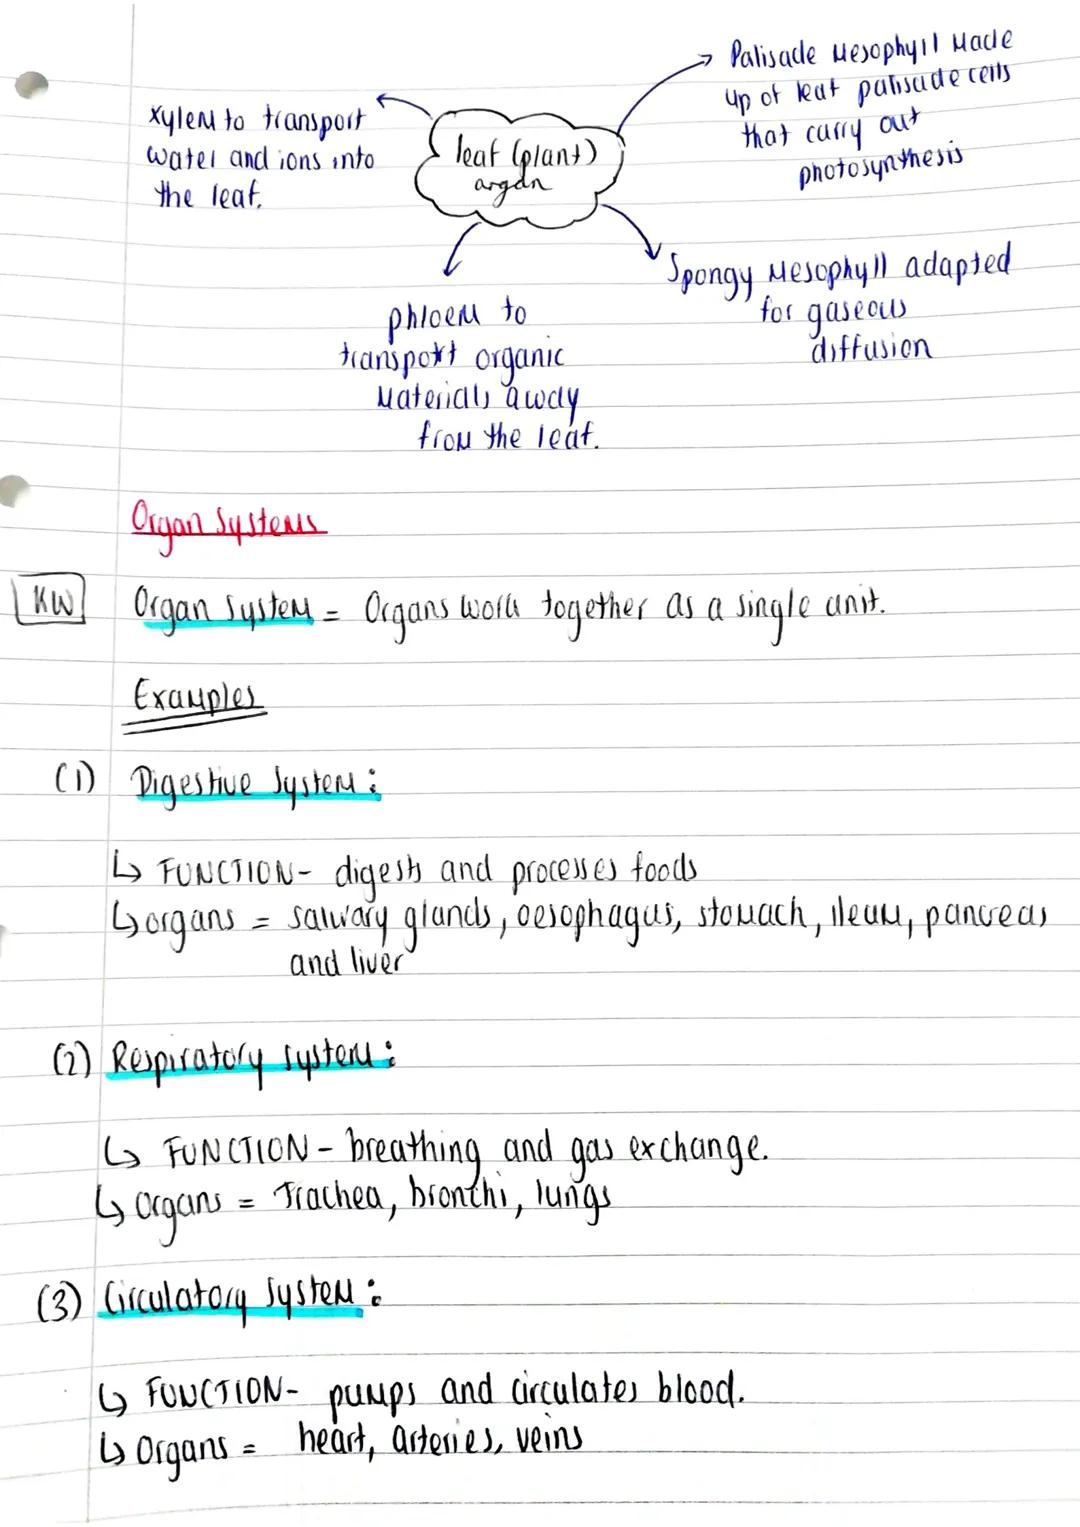 Xylem to transport
water and ions into
the leaf.
leaf (plant)
organ
Palisade Mesophyll Made
up of leaf palisade cells
that carry out
photosynthesis
phloem to
transport organic
Materials away
from the leaf.
Spongy Mesophyll adapted
for gaseous
diffusion
Organ Systems
KW
Organ System = Organs work together as a single unit.
Examples
(1) Digestive System:
↳ FUNCTION- digests and processes foods
↳ organs = salivary glands, oesophagus, stomach, ileum, pancreas
and liver
(2) Respiratory system:
↳ FUNCTION - breathing and gas exchange.
↳ organs = Trachea, bronchi, lungs
(3) Circulatory System:
↳ FUNCTION- pumps and circulates blood.
↳ Organs = heart, arteries, veins